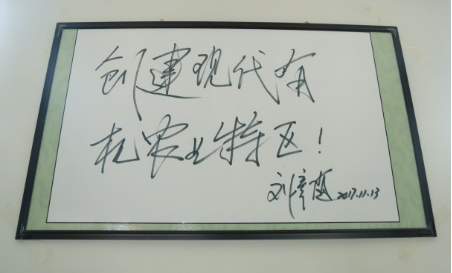 创建现代有
机农业特区！
刘 2017.11.13